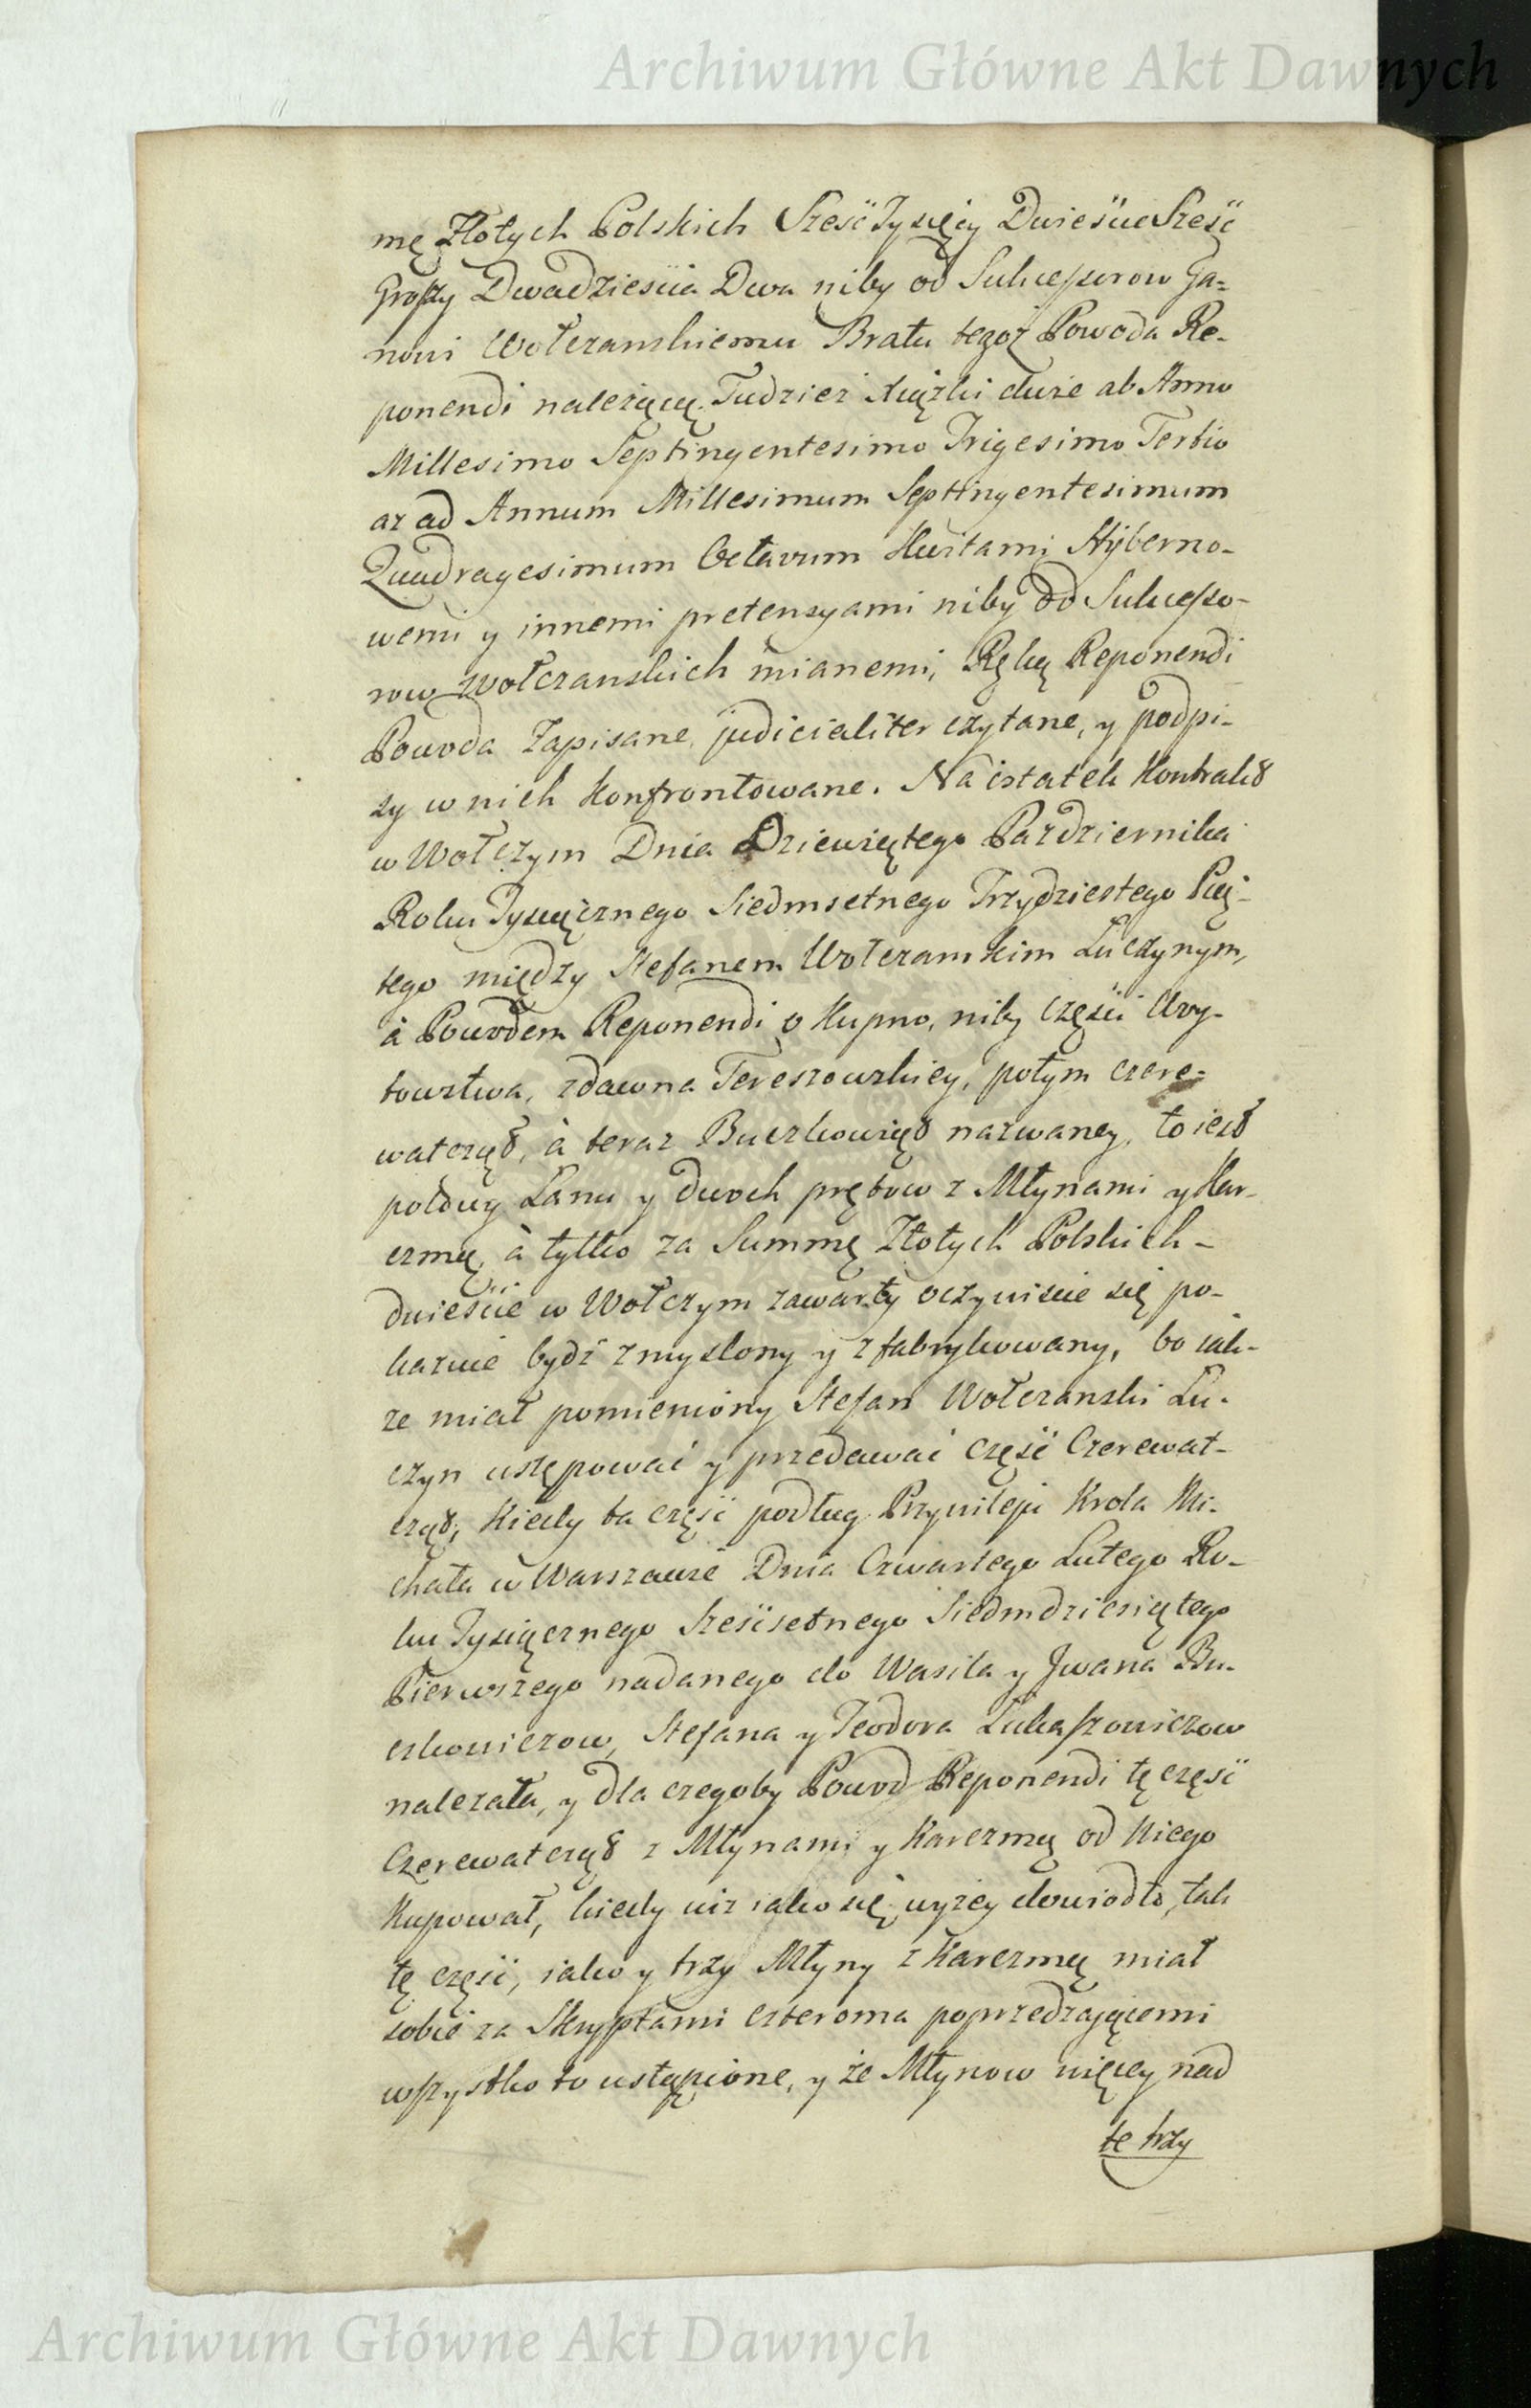 Archiwum Główne Akt Dawnych
mę Złotych Polskich Sześć Tysięcy Dwieście Sześć
Groszy Dwadzieścia Dwa niby od Sukcessorow Ga-
nowi Wołczanskiemu Bratu tegoż Powoda Re-
ponendi należącą. Tudzież Xiążki dwie ab Anno
Millesimo Septingentesimo Trigesimo Tertio
az ad Annum Millesimum Septingentesimum
Quadragesimum Octavum Kwitami Hyberno-
wemi y innemi pretensyami niby do Sukcesso-
row Wołczanskich mianemi, Ręką Reponendi
Powoda Zapisane, judicialiter czytane, y podpi-
sy w nich konfrontowane. Na ostatek Kontrakt
w Wołczym Dnia Dziewiątego Pazdziernika
Roku Tysiącznego Siedmsetnego Trzydziestego Pią-
tego między Stefanem Wołczanskim Luczynym,
à Powodem Reponendi o Kupno, niby Części Woy-
towstwa, zdawna Tereszowskiey, potym czere-
watczyd, à teraz Buczkowięd nazwaney, to iest
połowy Łanu y dwoch prętow z Młynami y Kar-
czmą, à tylko za Summę Złotych Polskich -
dwieście w Wołczym zawarty oczywiscie się po-
kazuie bydź zmyslony y zfabrykowany, bo iak-
ze miał pomieniony Stefan Wołczanski Lu-
czyn ustępować y przedawać Część Czerewat-
czyd, kiedy ta część podług Przywileju Krola Mi-
chała w Warszawie Dnia Czwartego Lutego Ro-
ku Tysiącznego Sześćsetnego Siedmdziesiątego
Pierwszego nadanego do Wasila y Jwana Bu-
czkowiczow, Stefana y Teodora Łukaszowiczow
nalezała, y dla czegoby Powod Reponendi tę część
Czerewatczyd z Młynami y Karczmą od Niego
Kupował, kiedy iuz iako się wyżey dowiodło, tak
tę część, iako y trzy Młyny z Karczmą miał
sobie za Skryptami czteroma poprzedzaiącemi
wszystko to ustąpione, y że Młynow więcey nad
te trzy
Archiwum Główne Akt Dawnych